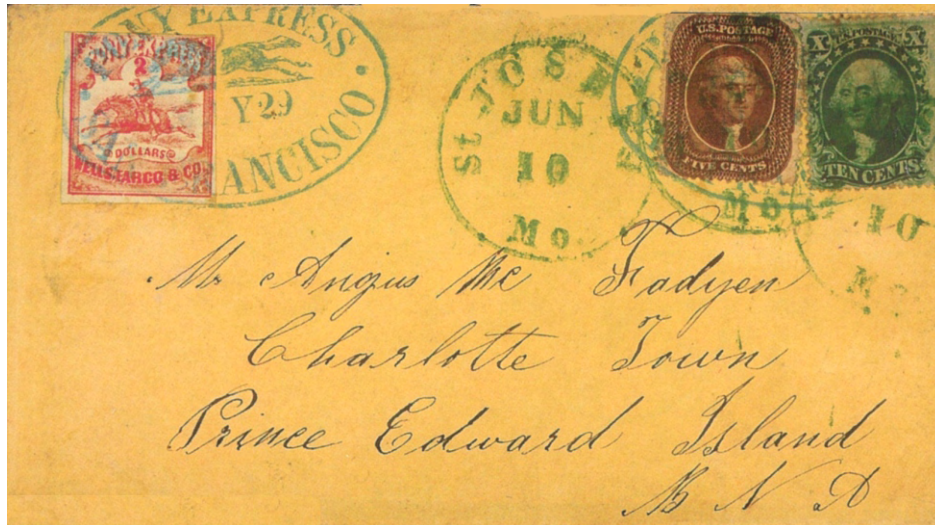 PONY EXPRESS
2
DOLLARS
WELLS FARGO & CO.
NY EXPRESS
Y 29
ANCISCO
St JOSE
JUN
10
Mo
U.S. POSTAGE
FIVE CENTS
Mo
X X
U.S. POSTAGE
TEN CENTS
10
Mo
Mr Angus Mc Fadyen
Charlotte Town
Prince Edward Island
B N A